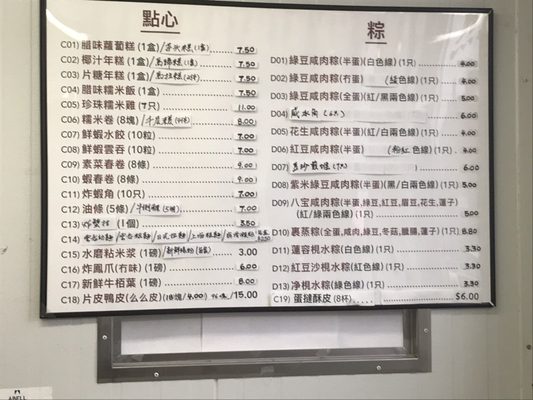 點心
C01) 腊味蘿蔔糕 (1盒)/芋頭糕(1盒) 7.50
C02) 椰汁年糕 (1盒)/馬蹄糕(1盒) 7.50
C03) 片糖年糕 (1盒) 7.50
C04) 腊味糯米飯 (1盒) 7.50
C05) 珍珠糯米雞 (7只) 11.00
C06) 糯米卷 (8塊)/千层糕 8.00
C07) 鮮蝦水餃 (10粒) 7.00
C08) 鮮蝦雲吞 (10粒) 7.00
C09) 素菜春卷 (8條) 9.00
C10) 蝦春卷 (8條) 9.00
C11) 炸蝦角 (10只) 7.00
C12) 油條 (5條)/牛脷酥(5個) 7.00
C13) 炸蟹拑 (1個) 3.50
C14)
C15) 水磨粘米浆 (1磅) 3.00
C16) 炸鳳爪 (冇味) (1磅) 6.00
C17) 新鮮牛栢葉 (1磅) 8.00
C18) 片皮鴨皮 (么么皮) (18塊/4.00) /15.00
粽
D01) 綠豆咸肉粽 (半蛋)(白色線)(1只) 4.00
D02) 綠豆咸肉粽 (冇蛋) (綠色線)(1只) 4.00
D03) 綠豆咸肉粽 (全蛋)(紅/黑兩色線)(1只) 5.00
D04) 咸水角 6.00
D05) 花生咸肉粽 (半蛋)(紅/白兩色線)(1只) 4.00
D06) 紅豆咸肉粽 (半蛋) (粉紅色線)(1只) 4.00
D07) 6.00
D08) 紫米綠豆咸肉粽 (半蛋)(黑/白兩色線)(1只) 5.00
D09) 八宝咸肉粽 (半蛋,綠豆,紅豆,眉豆,花生,蓮子)
(紅/綠兩色線)(1只) 5.00
D10) 裹蒸粽 (全蛋,咸肉,綠豆,冬菇,臘腸,蓮子)(1只) 8.80
D11) 蓮容梘水粽 (白色線)(1只) 3.30
D12) 紅豆沙梘水粽 (紅色線)(1只) 3.30
D13) 净梘水粽 (綠色線)(1只) 3.30
C19) 蛋撻酥皮 (8杯) $6.00